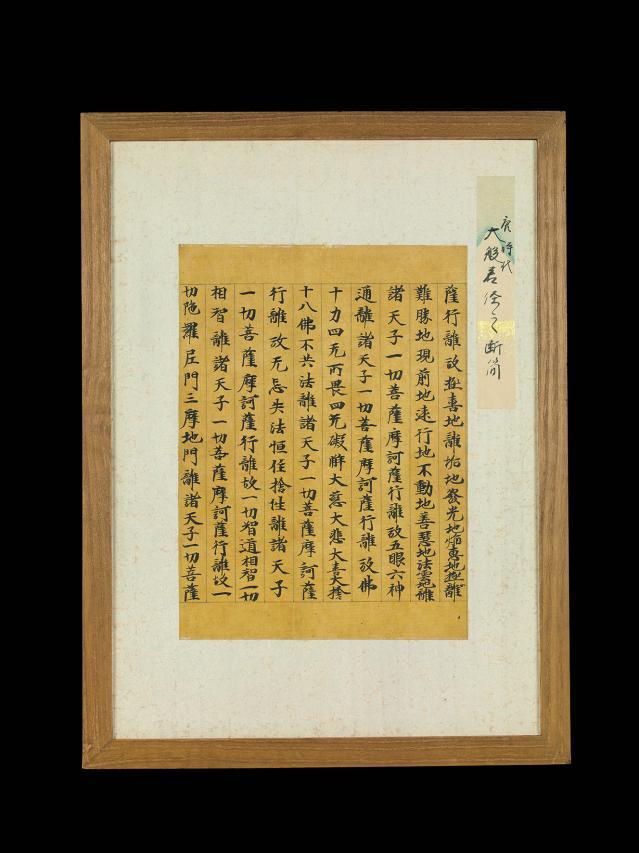 唐時代
大般若経之断簡
薩行離故極喜地離垢地發光地焰慧地極離
難勝地現前地遠行地不動地善慧地法雲地離
諸天子一切菩薩摩訶薩行離故五眼六神
通離諸天子一切菩薩摩訶薩行離故佛
十力四无所畏四无礙解大慈大悲大喜大捨
十八佛不共法離諸天子一切菩薩摩訶薩
行離故无忘失法恒住捨性離諸天子
一切菩薩摩訶薩行離故一切智道相智一切
相智離諸天子一切菩薩摩訶薩行離故一
切陁羅尼門三摩地門離諸天子一切菩薩